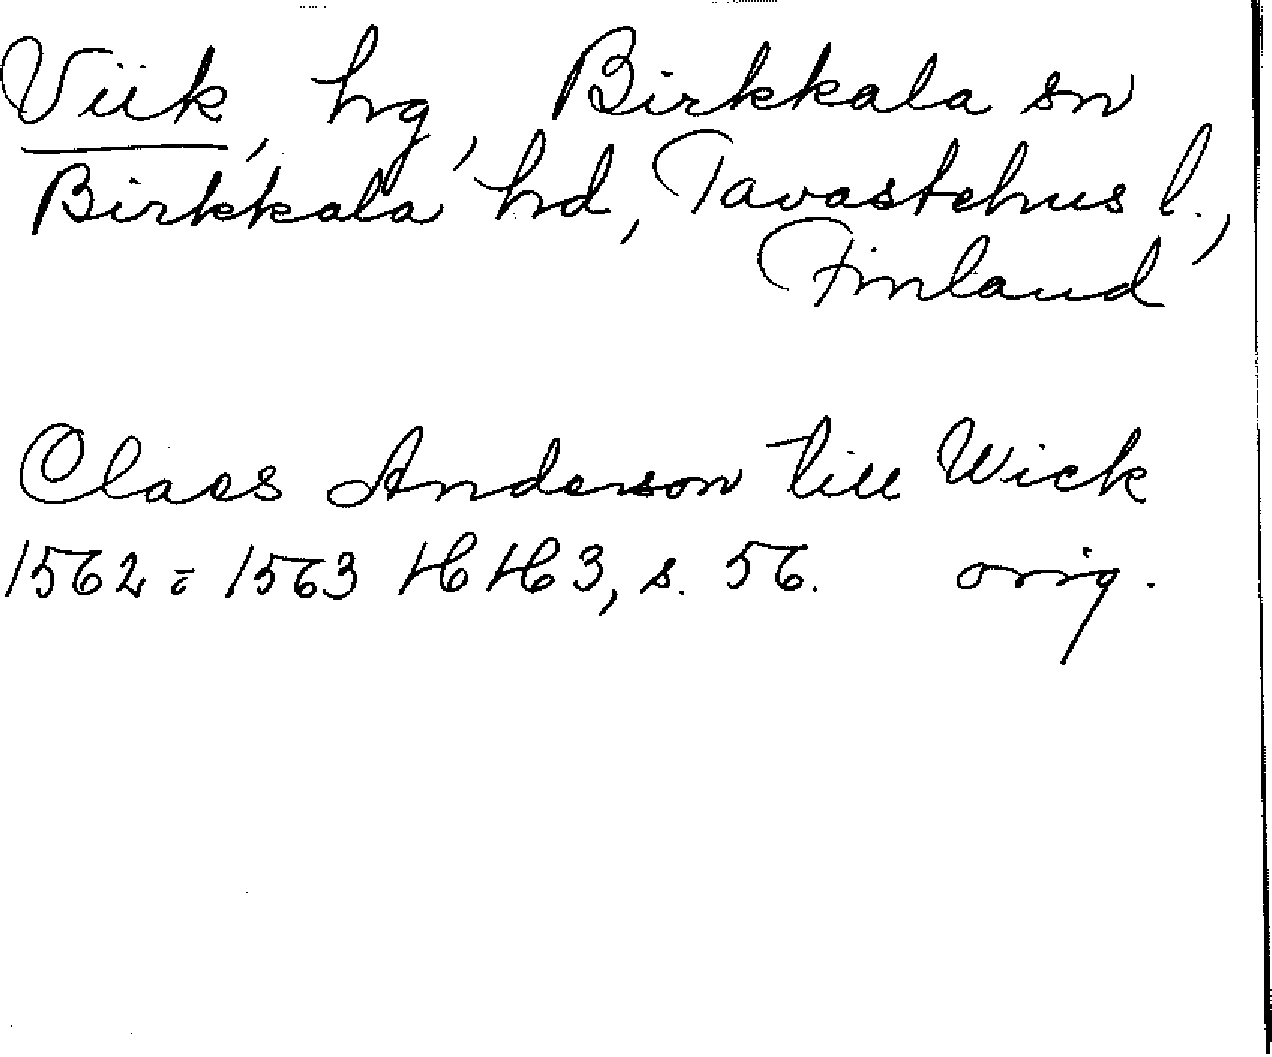 Viik, hg, Birkkala sn
Birkkala hd, Tavastehus l.,
Finland
Claes Anderson till Wick
1562 = 1563 HH 3, s. 56. orig.